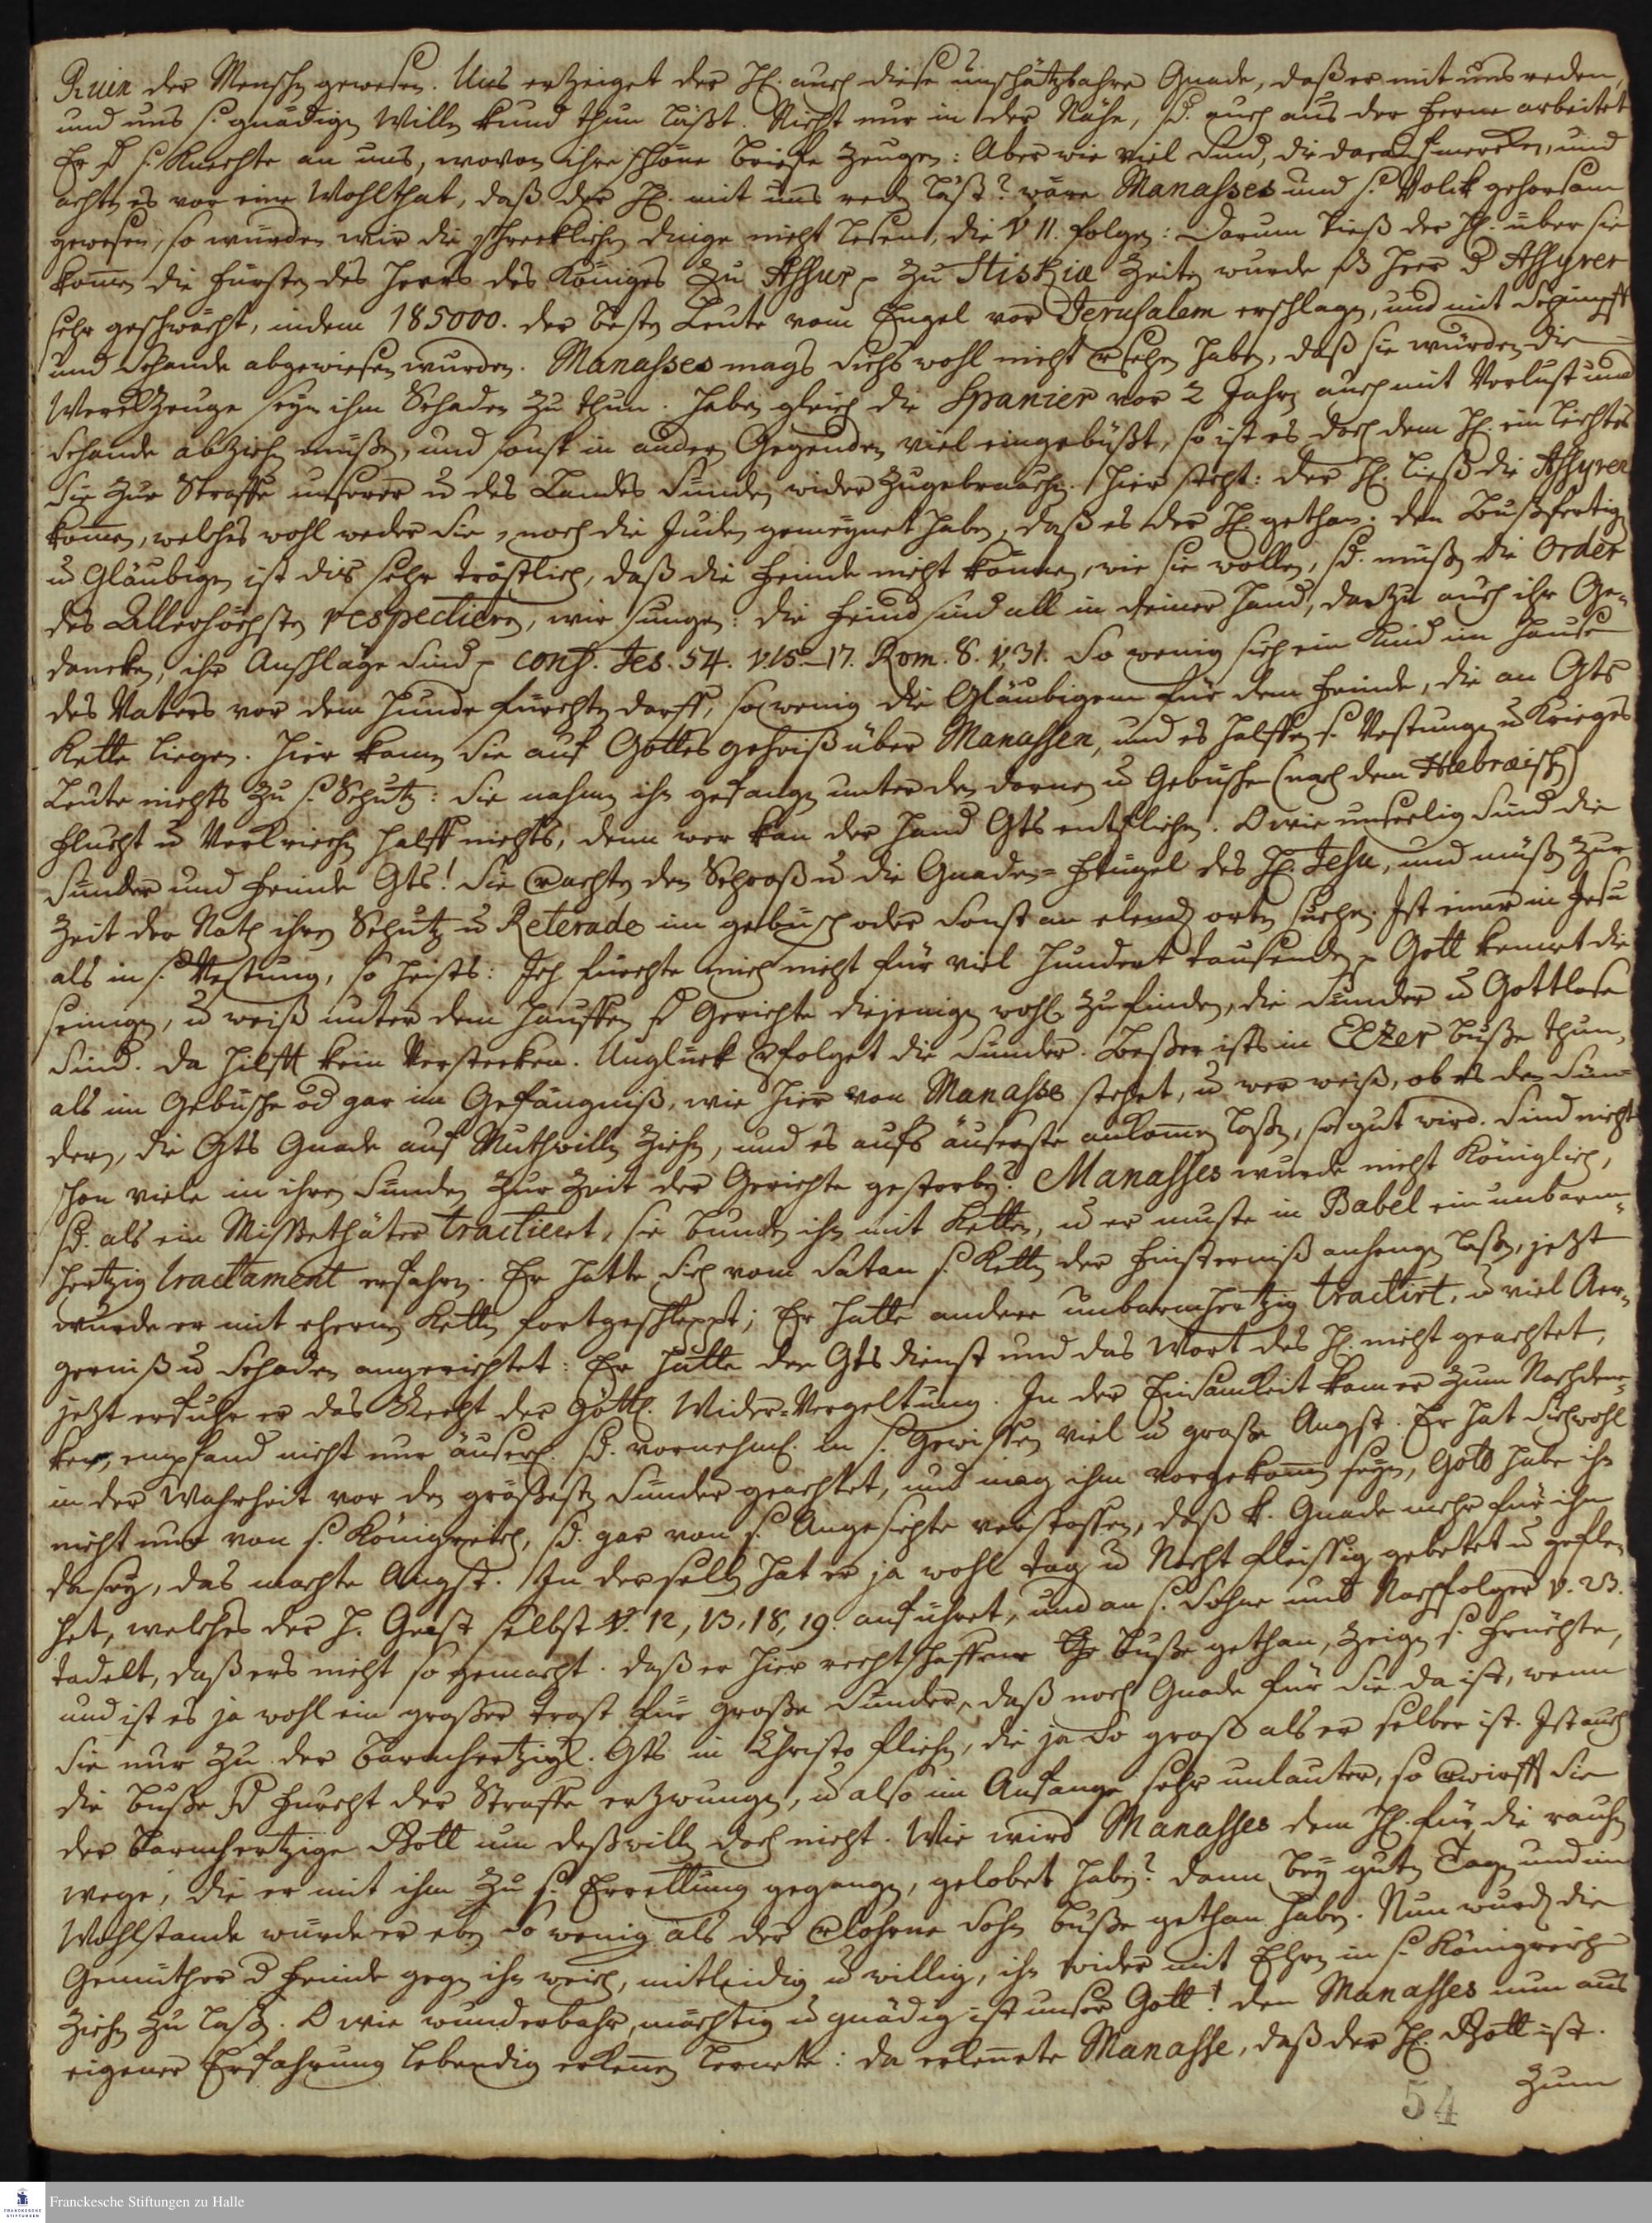 Ruin der Menschen gewesen. Uns erzeiget der H. auch diese unschätzbahre Gnade, daß er mit uns reden,
und uns s. gnädigen Willen kund thun läßt. Nicht nur in der Nähe, sd. auch aus der Ferne arbeitet
Er d s. Knechte an uns, wovon ihre schöne Briefe zeugen: Aber wie viel sind, die darauf mercken, und
achten es vor eine Wohlthat, daß der H. mit uns reden läßt? wäre Manasses und s. Volck gehorsam
gewesen, so würden wir die schrecklichen dinge nicht lesen, die V 11. folgen: Darum ließ der H. über sie
kom̄en die Fürsten des Heers des Königes zu Assur p zu Hiskiae Zeiten wurde ds Heer d Assyrer
sehr geschwächt, indem 185000. der besten Leute vom Engel vor Jerusalem erschlagen, und mit Schimpff
und Schande abgewiesen wurden. Manasses mags sichs wohl nicht versehen haben, daß sie würden die
Werckzeuge seyn ihm Schaden zu thun. Haben gleich die Spanier vor 2 Jahren auch mit Verlust und
Schande abziehen müßen, und sonst in andern Gegenden viel eingebüßt, so ist es doch dem H. ein leichtes
sie zur Straffe unserer u des Landes Sünden wider zu gebrauchen. Hier steht: der H. ließ die Assyrer
kom̄en, welches wohl weder sie, noch die Juden gemeynet haben, daß es der H. gethan. den Bußfertigen
u Gläubigen ist dis sehr tröstlich, daß die Feinde nicht können, wie sie wollen, sd. müßen die Order
des Allerhöchsten respectiren, wir sungen: die Feind sind all in deiner Hand, darzu auch ihr Ge-
dancken, ihr Anschläge sind p conf. Jes. 54. v. 15–17. Rom. 8. v. 31. So wenig sich ein Kind im Hause
des Vaters vor dem Hunde fürchten darff, so wenig die Gläubigen für dem Feinde, die an Gts
Kette liegen. Hier kamen sie auf Gottes geheiß über Manassen, und es halffen s. Vestungen u Krieges
Leute nichts zu s. Schutz: sie nahmen ihn gefangen unter den dornen u Gebüsche (nach dem Hebraeischen)
Flucht u Verkriechen halff nichts, denn wer kan der Hand Gts entfliehen. O wie unseelig sind die
Sünder und Feinde Gts! Sie verachten den Schooß u die Gnaden-Flügel des H. Jesu, und müßen zur
Zeit der Noth ihren Schutz u Reterade im gebüsch oder sonst an elenden orten suchen. Ist einer in Jesu
als in s. Vestung, so heists: Ich fürchte mich nicht für viel hundert tausenden p Gott kennet die
seinigen, u weiß unter dem Hauffen d Gerichte diejenigen wohl zu finden, die Sünder u Gottlose
sind. da hilfft kein Verstecken. Unglück verfolget die Sünder. Beßer ists in EbEzer Buße thun,
als im Gebüsche od gar im Gefängniß, wie hier von Manasse stehet, u wer weiß, ob es den Sün-
dern, die Gts Gnade auf Muthwillen ziehen, und es aufs äuserste ankom̄en laßen, so gut wird. Sind nicht
schon viele in ihren Sünden zur Zeit der Gerichte gestorben? Manasses wurde nicht Königlich,
sd. als ein Missethäter tractieret, sie bunden ihn mit Ketten, u er muste in Babel ein unbarm-
hertzig tractament erfahren. Er hatte sich vom Satan s. Ketten der Finsterniß anhengen laßen, jetzt
wurde er mit ehernen Ketten fortgeschleppt; Er hatte andere unbarmhertzig tractirt, u viel Aer-
gerniß u Schaden angerichtet: Er hatte den Gtsdienst und das Wort des H. nicht geachtet,
jetzt erfuhr er das Recht der Göttl. Wider-Vergeltung. In der Einsamkeit kam er zum Nachden-
ken, empfand nicht nur äuserl. sd. vornehml. in s. Gewissen viel u große Angst. Er hat sich wohl
in der Wahrheit vor den größesten Sünder geachtet, und mag ihm vorgekom̄en seyn, Gott habe ihn
nicht nur von s. Königreich, sd. gar von s. Angesichte verstossen, daß k. Gnade mehr für ihn
da sey, das machte Angst. In derselben hat er ja wohl tag u Nacht fleissig gebetet u gefle-
het, welches der H. Geist selbst V. 12, 13, 18, 19. anführet, und an s. Sohne und Nachfolger v. 23.
tadelt, daß ers nicht so gemacht. daß er hier rechtschaffene Buße gethan, zeigen s. Früchte,
und ist es ja wohl ein großer trost für große Sünder, daß noch Gnade für sie da ist, wenn
sie nur zu der barmhertzigk. Gts in Christo fliehen, die ja so groß als er selber ist. Ist auch
die Buße d Furcht der Straffe erzwungen, u also im Anfange sehr unlauter, so verwirfft sie
der barmhertzige Gott um deßwillen doch nicht. Wie wird Manasses dem H. für die rauhen
wege, die er mit ihm zu s. Errettung gegangen, gelobet haben? dann bey guten Tagen und im
Wohlstande würde er eben so wenig als der verlohrne Sohn Buße gethan haben. Nun wurden die
Gemüther d Feinde gegen ihn weich, mitleidig u willig, ihn wider mit Ehren in s. Königreich
ziehen zu laßen. O wie wunderbahr, mächtig u gnädig ist unser Gott! den Manasses nun aus
eigener Erfahrung lebendig erken̄en lernete: da erkennete Manasse, daß der H. Gott ist.
Zum
54
Franckesche Stiftungen zu Halle